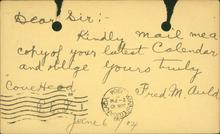 Dear Sir:-
Kindly mail me a
copy of your latest Calendar
and oblige yours truly
Fred M. Auld
"Cove Head
June 6 04